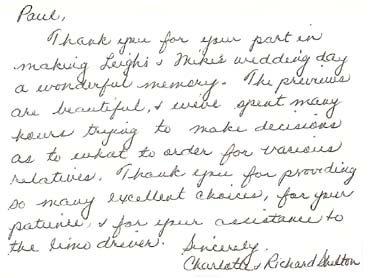 Paul,
Thank you for your part in
making Leigh's & Mike's wedding day
a wonderful memory. The previews
are beautiful, & we've spent many
hours trying to make decisions
as to what to order for various
relatives. Thank you for providing
so many excellent choices, for your
patience, & for your assistance to
the limo driver. Sincerely,
Charlotte & Richard Shelton